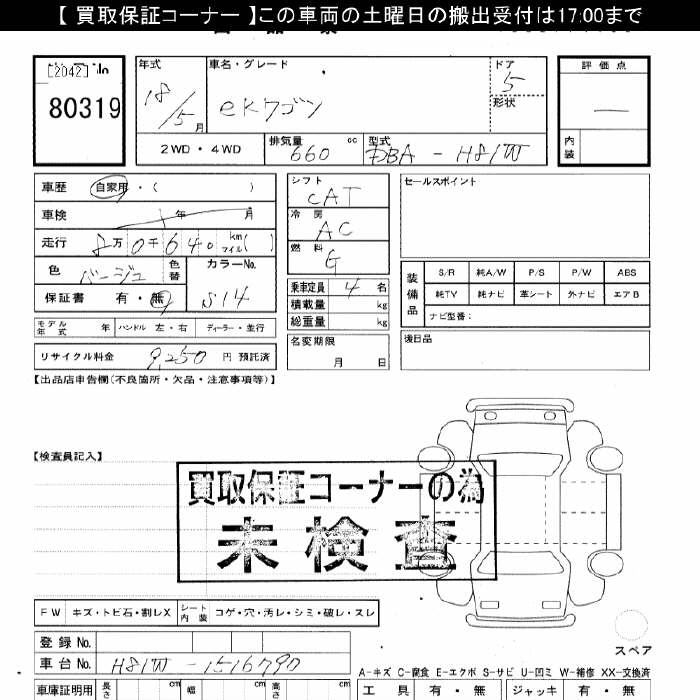 【 買取保証コーナー 】この車両の土曜日の搬出受付は17:00まで
[2042] No
80319
年式
18/5 月
車名・グレード
eKワゴン
ドア
5
形状
評価点
—
内装
2WD・4WD
排気量 660 cc
型式 DBA - H81W
車歴 自家用・( )
車検 年 月
走行 8万0千640 km マイル( )
色 ベージュ 色替
カラーNo. S14
保証書 有・無
モデル年式 年 ハンドル 左・右 ディーラー・並行
リサイクル料金 9,250 円 預託済
シフト
CAT
冷房
AC
燃料
G
乗車定員 4 名
積載量 kg
総重量 kg
名変期限
月 日
セールスポイント
装備品
S/R 純A/W P/S P/W ABS
純TV 純ナビ 革シート 外ナビ エアB
ナビ型番：
後日品
【出品店申告欄(不良箇所・欠品・注意事項等)】
【検査員記入】
買取保証コーナーの為
未検査
FW キズ・トビ石・割レX シート内装 コゲ・穴・汚レ・シミ・破レ・スレ
登録 No.
車台 No. H81W - 1516790
スペア
A-キズ C-腐食 E-エクボ S-サビ U-凹ミ W-補修 XX-交換済
車庫証明用 長さ cm 幅 cm 高さ cm
工具 有・無 ジャッキ 有・無